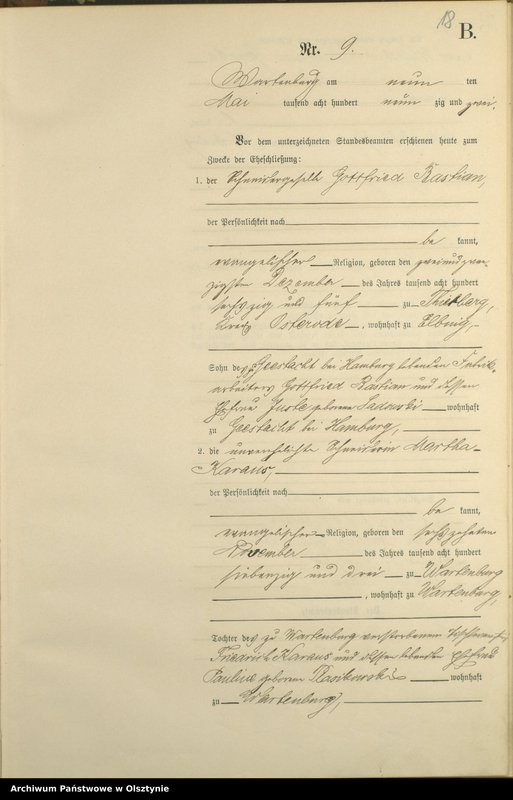 18
B.
Nr. 9.
Wartenburg am neun ten
Mai tausend acht hundert neun zig und zwei.
Vor dem unterzeichneten Standesbeamten erschienen heute zum
Zwecke der Eheschließung:
1. der Schneidergeselle Gottfried Bastian,
der Persönlichkeit nach
be kannt,
evangelischer Religion, geboren den zweiundzwan-
zigsten Dezember des Jahres tausend acht hundert
sechzig und fünf zu Thierberg,
Kreis Osterode, wohnhaft zu Elbing.
Sohn des zu Geestacht bei Hamburg lebenden Fabrik-
arbeiters Gottfried Bastian und dessen
Ehefrau Juste geborene Sadowski wohnhaft
zu Geestacht bei Hamburg,
2. die unverehelichte Schneiderin Martha
Karaus,
der Persönlichkeit nach
be kannt,
evangelischer Religion, geboren den sechszehnten
November des Jahres tausend acht hundert
siebenzig und drei zu Wartenburg
, wohnhaft zu Wartenburg,
Tochter des zu Wartenburg verstorbenen
Friedrich Karaus und dessen lebenden Ehefrau
Pauline geborene wohnhaft
zu Wartenburg,
Archiwum Państwowe w Olsztynie